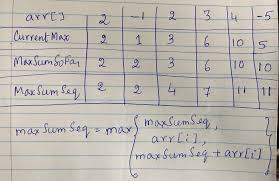 arr[] 2 -1 2 3 4 -5
CurrentMax 2 1 3 6 10 5
MaxSumSoFar 2 2 3 6 10 10
MaxSumSeq 2 2 4 7 11 11
maxSumSeq = max { maxSumSeq,
arr[i],
maxSumSeq + arr[i] }